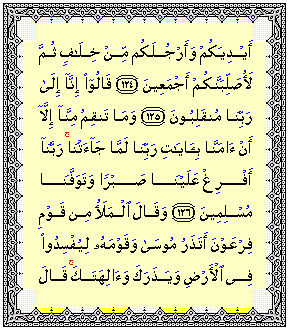 أَيْدِيَكُمْ وَأَرْجُلَكُم مِّنْ خِلَٰفٍ ثُمَّ
لَأُصَلِّبَنَّكُمْ أَجْمَعِينَ ﴿١٢٤﴾ قَالُوٓا۟ إِنَّآ إِلَىٰ
رَبِّنَا مُنقَلِبُونَ ﴿١٢٥﴾ وَمَا تَنقِمُ مِنَّآ إِلَّآ
أَنْ ءَامَنَّا بِـَٔايَٰتِ رَبِّنَا لَمَّا جَآءَتْنَا ۚ رَبَّنَآ
أَفْرِغْ عَلَيْنَا صَبْرًا وَتَوَفَّنَا
مُسْلِمِينَ ﴿١٢٦﴾ وَقَالَ ٱلْمَلَأُ مِن قَوْمِ
فِرْعَوْنَ أَتَذَرُ مُوسَىٰ وَقَوْمَهُۥ لِيُفْسِدُوا۟
فِى ٱلْأَرْضِ وَيَذَرَكَ وَءَالِهَتَكَ ۚ قَالَ